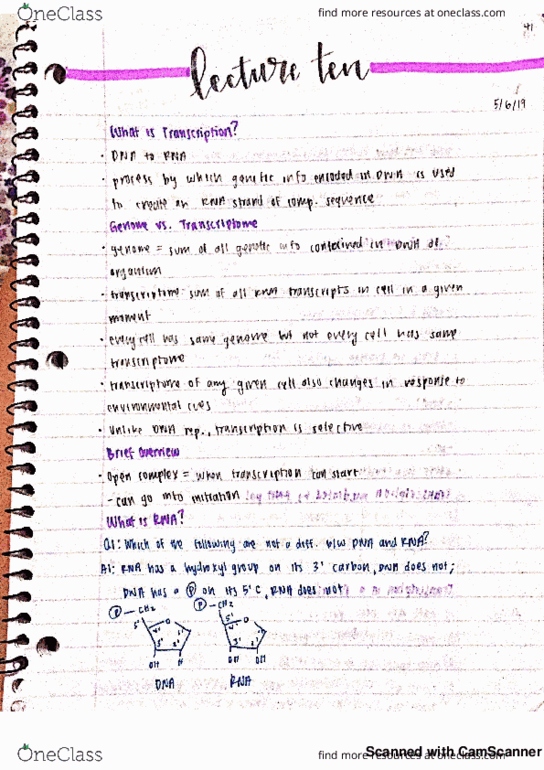 OneClass
find more resources at oneclass.com
41
lecture ten
5/6/19
What is Transcription?
· DNA to RNA
· process by which genetic info encoded in DNA is used
to create an RNA strand of comp. sequence
Genome vs. Transcriptome
· genome = sum of all genetic info contained in DNA of
organism
· transcriptome: sum of all RNA transcripts in cell in a given
moment
· every cell has same genome but not every cell has same
transcriptome
· transcriptome of any given cell also changes in response to
environmental cues
· Unlike DNA rep., transcription is selective
Brief Overview
· open complex = when transcription can start
- can go into initiation
What is RNA?
Q1: Which of the following are not a diff. b/w DNA and RNA?
A1: RNA has a hydroxyl group on its 3' carbon, DNA does not;
DNA has a P on its 5' C, RNA does not
P - CH2 P - CH2
5' 5'
O O
4' 1'
3' 2' 3' 2'
OH H OH OH
DNA RNA
OneClass
find more resources at oneclass.com
Scanned with CamScanner